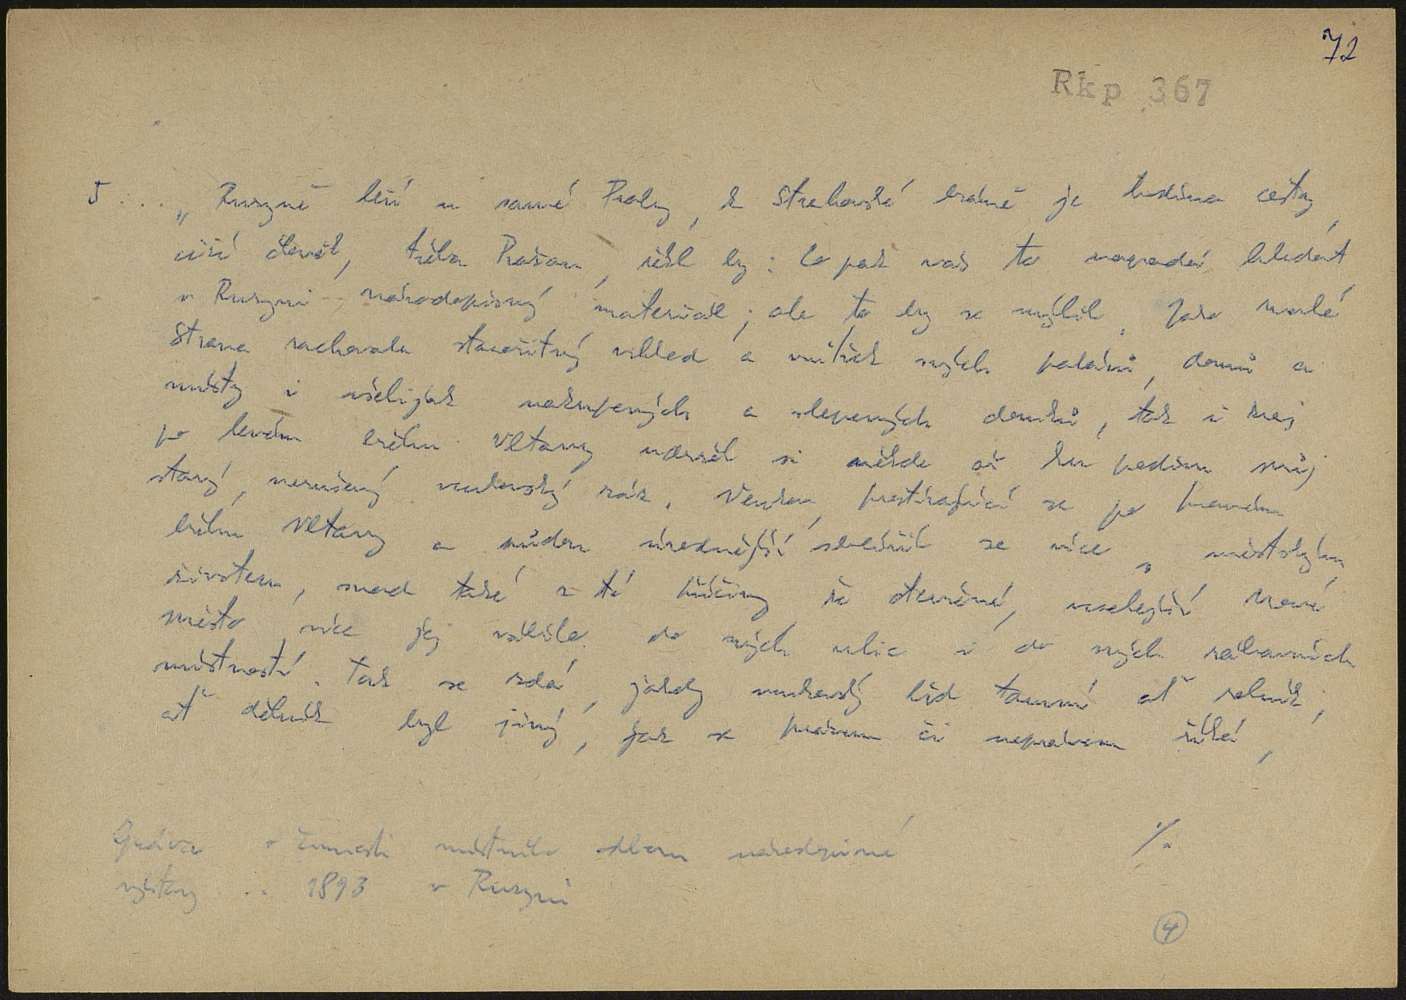 72
Rkp 367
5 ... „Ruzyně leží u samé Prahy, k Strahovské bráně je hodina cesty,
cizí člověk, třeba Pražan, řekl by: Co pak vás to napadá hledat
v Ruzyni národopisný materiál; ale to by se mýlil. Jako Malá
Strana zachovala starožitný vzhled a vnitřek svých paláců, domů a
místy i všelijak nakupených a slepených domků, tak i kraj
po levém břehu Vltavy udržel si někde až ku podivu svůj
starý, nerušený venkovský ráz. Venkov prostírající se po pravém
břehu Vltavy a půdou úrodnější sblížil se více s městským
životem, snad také z té příčiny že otevřené, veselejší Nové
Město více jej vábilo do svých ulic i do svých zábavních
místností. Tak se zdá, jakoby venkovský lid tamní ať rolník,
ať dělník byl jiný, jak se právem či neprávem říká,
Zpráva o činnosti místního odboru národopisné
výstavy ... 1893 v Ruzyni
./.
4